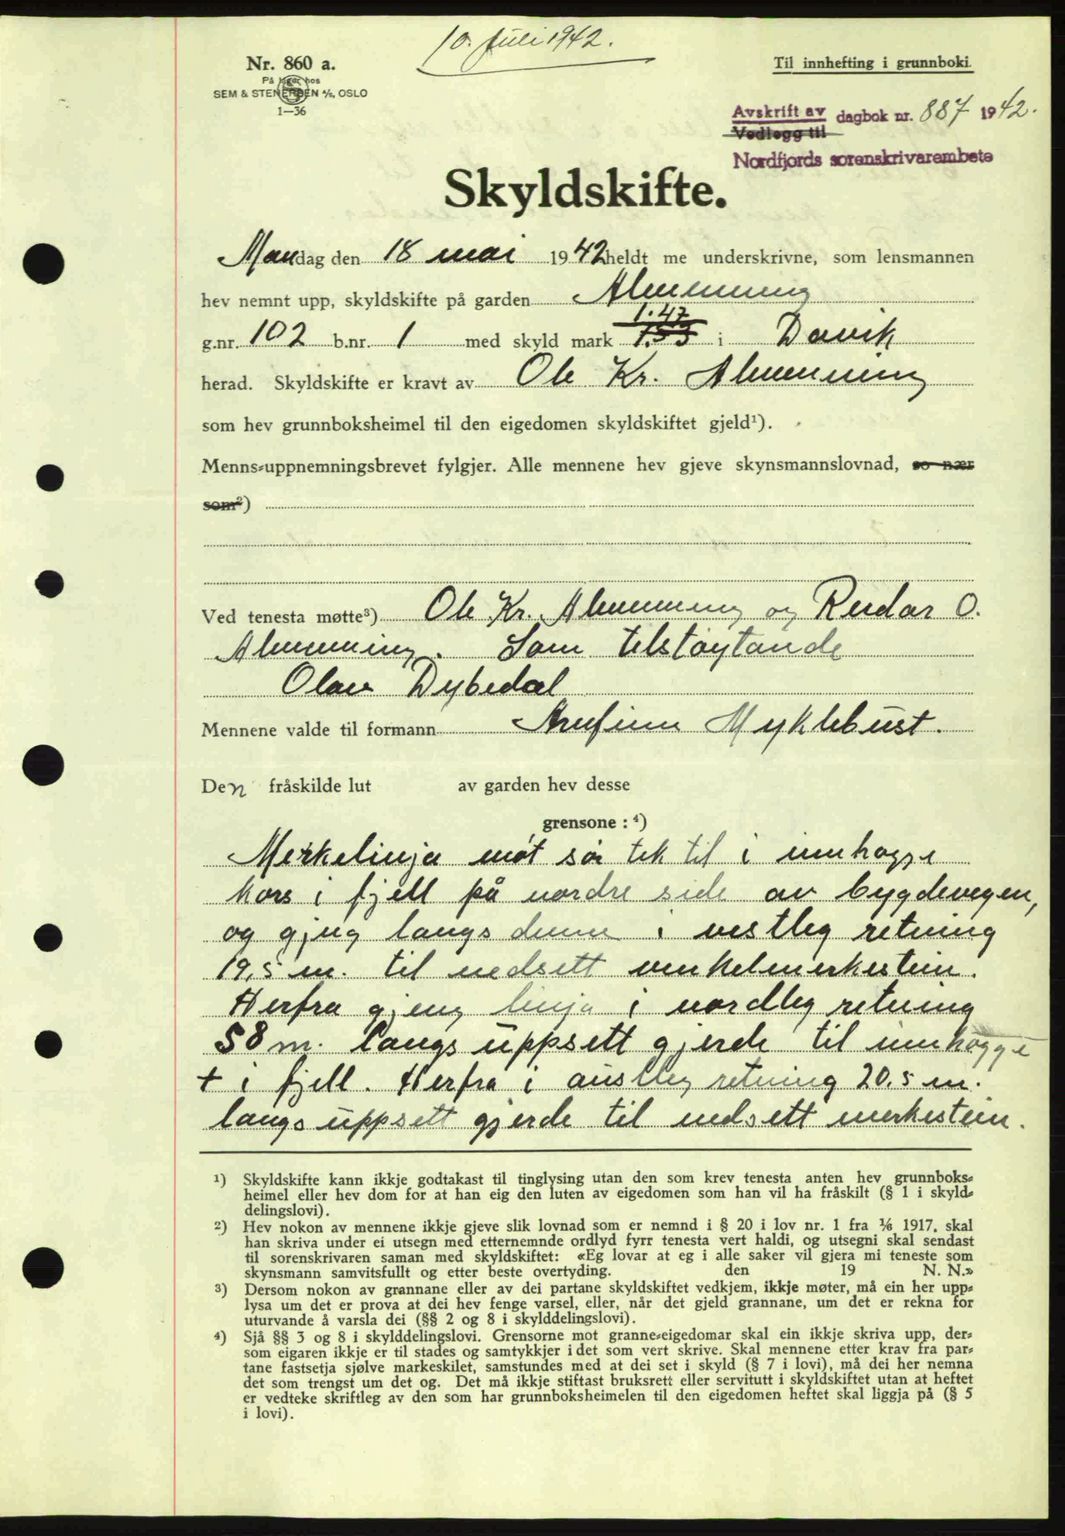 10. Juli 1942.
Nr. 860 a.
På lager hos
SEM & STENERSEN A/S, OSLO
1—36
Til innhefting i grunnboki.
Avskrift av dagbok nr. 887 1942.
Vedlegg til
Nordfjords sorenskrivarembete
Skyldskifte.
Mandag den 18 mai 1942 heldt me underskrivne, som lensmannen
hev nemnt upp, skyldskifte på garden Almenning
1.47
g.nr. 102 b.nr. 1 med skyld mark 1.53 i Davik
herad. Skyldskifte er kravt av Ole Kr. Almenning
som hev grunnboksheimel til den eigedomen skyldskiftet gjeld¹).
Menns-uppnemningsbrevet fylgjer. Alle mennene hev gjeve skynsmannslovnad, so nær
som²)
Ved tenesta møtte³) Ole Kr. Almenning og Reidar O.
Almenning. Som tilstøytande
Olav Dybedal
Mennene valde til formann Arnfinn Myklebust.
Den fråskilde lut av garden hev desse
grensone : ⁴)
Merkelinja mot sør tek til i innhogge
kors i fjell på nordre side av bygdevegen,
og gjeng langs denne i vestleg retning
19,5 m. til nedsett vinkelmerkestein.
Herfra gjeng linja i nordleg retning
58 m. langs uppsett gjerde til innhogge
+ i fjell. Herfra i austleg retning 20,5 m.
langs uppsett gjerde til nedsett merkestein.
¹) Skyldskifte kann ikkje godtakast til tinglysing utan den som krev tenesta anten hev grunnboks-
heimel eller hev dom for at han eig den luten av eigedomen som han vil ha fråskilt (§ 1 i skyld-
delingslovi).
²) Hev nokon av mennene ikkje gjeve slik lovnad som er nemnd i § 20 i lov nr. 1 fra 1/6 1917, skal
han skriva under ei utsegn med etternemnde ordlyd fyrr tenesta vert haldi, og utsegni skal sendast
til sorenskrivaren saman med skyldskiftet: «Eg lovar at eg i alle saker vil gjera mi teneste som
skynsmann samvitsfullt og etter beste overtyding. den 19 N. N.»
³) Dersom nokon av grannane eller av dei partane skyldskiftet vedkjem, ikkje møter, må ein her upp-
lysa um det er prova at dei hev fenge varsel, eller, når det gjeld grannane, um det er rekna for
uturvande å varsla dei (§§ 2 og 8 i skylddelingslovi).
⁴) Sjå §§ 3 og 8 i skylddelingslovi. Grensorne mot granne-eigedomar skal ein ikkje skriva upp, der-
som eigaren ikkje er til stades og samtykkjer i det som vert skrive. Skal mennene etter krav fra par-
tane fastsetja sjølve markeskilet, samstundes med at dei set i skyld (§ 7 i lovi), må dei her nemna
det som trengst um det og. Det må ikkje stiftast bruksrett eller servitutt i skyldskiftet utan at heftet
er vedteke skriftleg av den som har grunnboksheimelen til den eigedomen heftet skal liggja på (§ 5
i lovi).